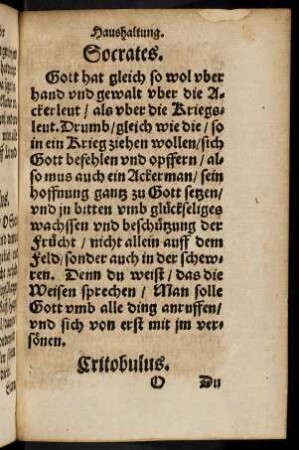 Haushaltung.
Socrates.
Gott hat gleich so wol vber
hand vnd gewalt vber die A-
ckerleut / als vber die Kriegs-
leut. Drumb / gleich wie die / so
in ein Krieg ziehen wollen / sich
Gott befehlen vnd opffern / al-
so mus auch ein Ackerman / sein
hoffnung gantz zu Gott setzen /
vnd jn bitten vmb glückseliges
wachssen vnd beschützung der
Frücht / nicht allein auff dem
Feld / sonder auch in der schew-
ren. Denn du weist / das die
Weisen sprechen / Man solle
Gott vmb alle ding anruffen /
vnd sich von erst mit jm ver-
sönen.
Critobulus.
O Du